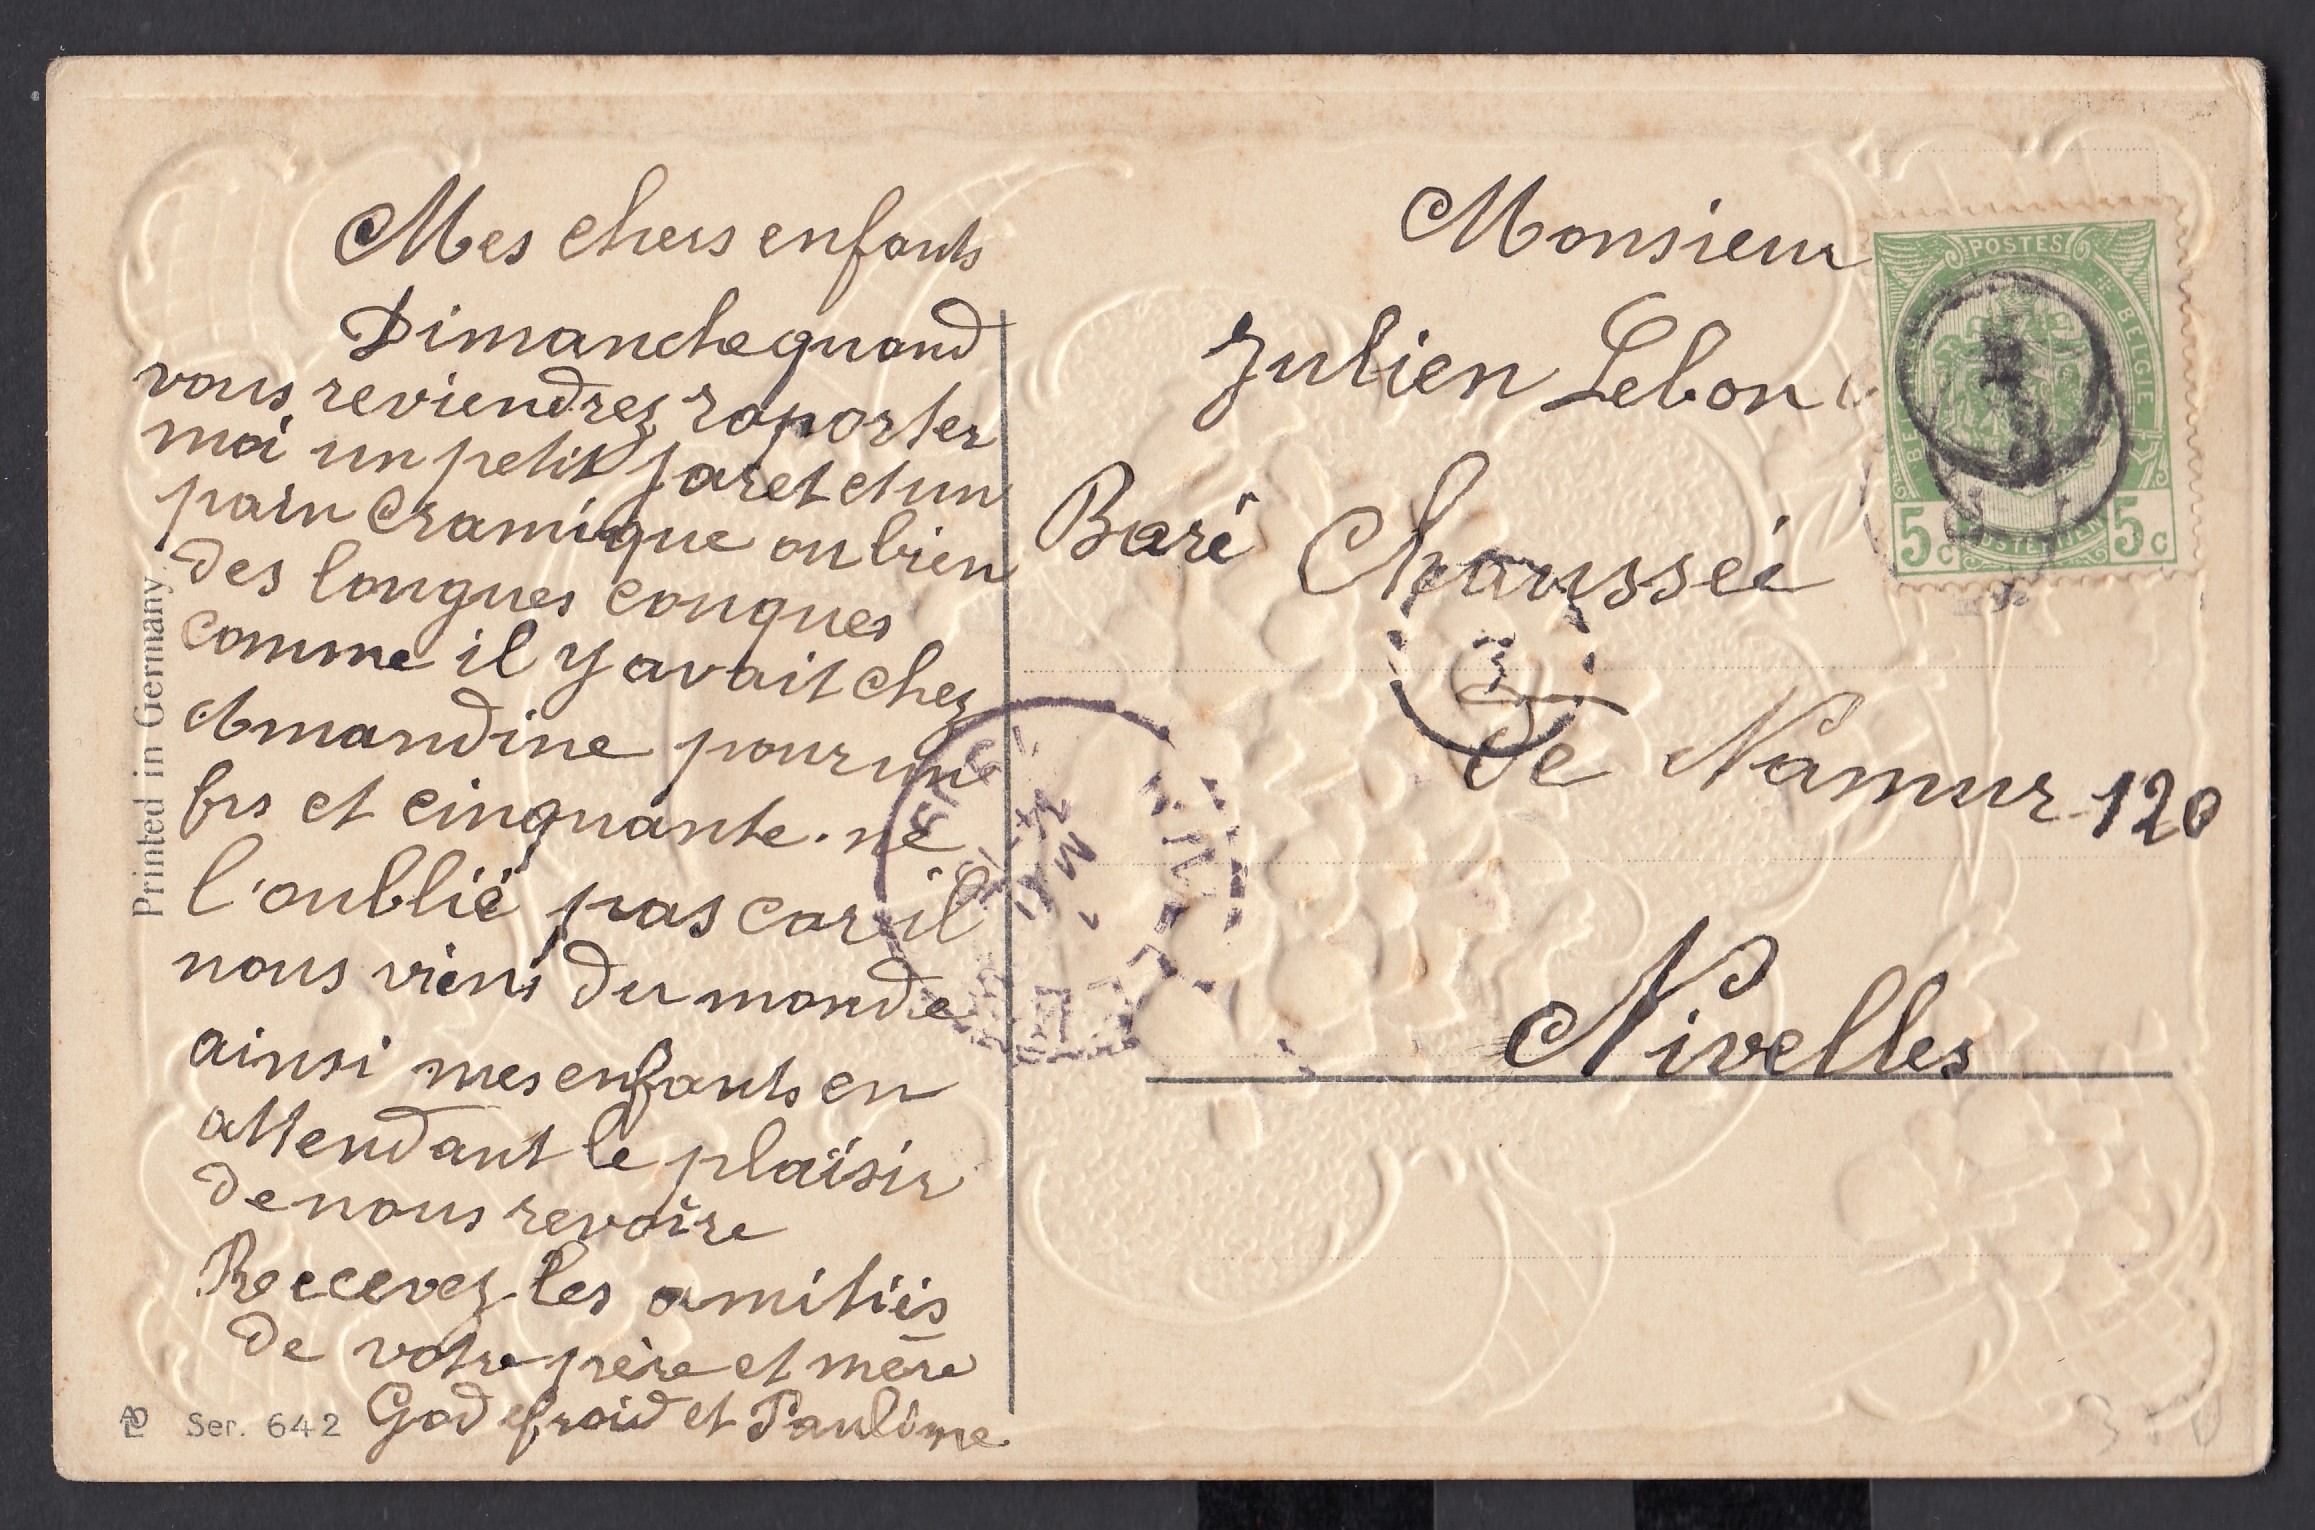 Mes chers enfants
Dimanche quand
vous reviendrez raporter
moi un petit jaret et un
pain cramique ou bien
des longues couques
comme il y avait chez
Amandine pour un
frs et cinquante. ne
l'oublié pas car il
nous viens du monde
ainsi mes enfants en
attendant le plaîsir
de nous revoire
Recevez les amitiés
de votre père et mère
Godefroid et Pauline
Monsieur
Julien Lebon
Baré Chausseé
de Namur 120
Nivelles
Printed in Germany
Ser. 642
POSTES
BELGIE
5c 5c
3